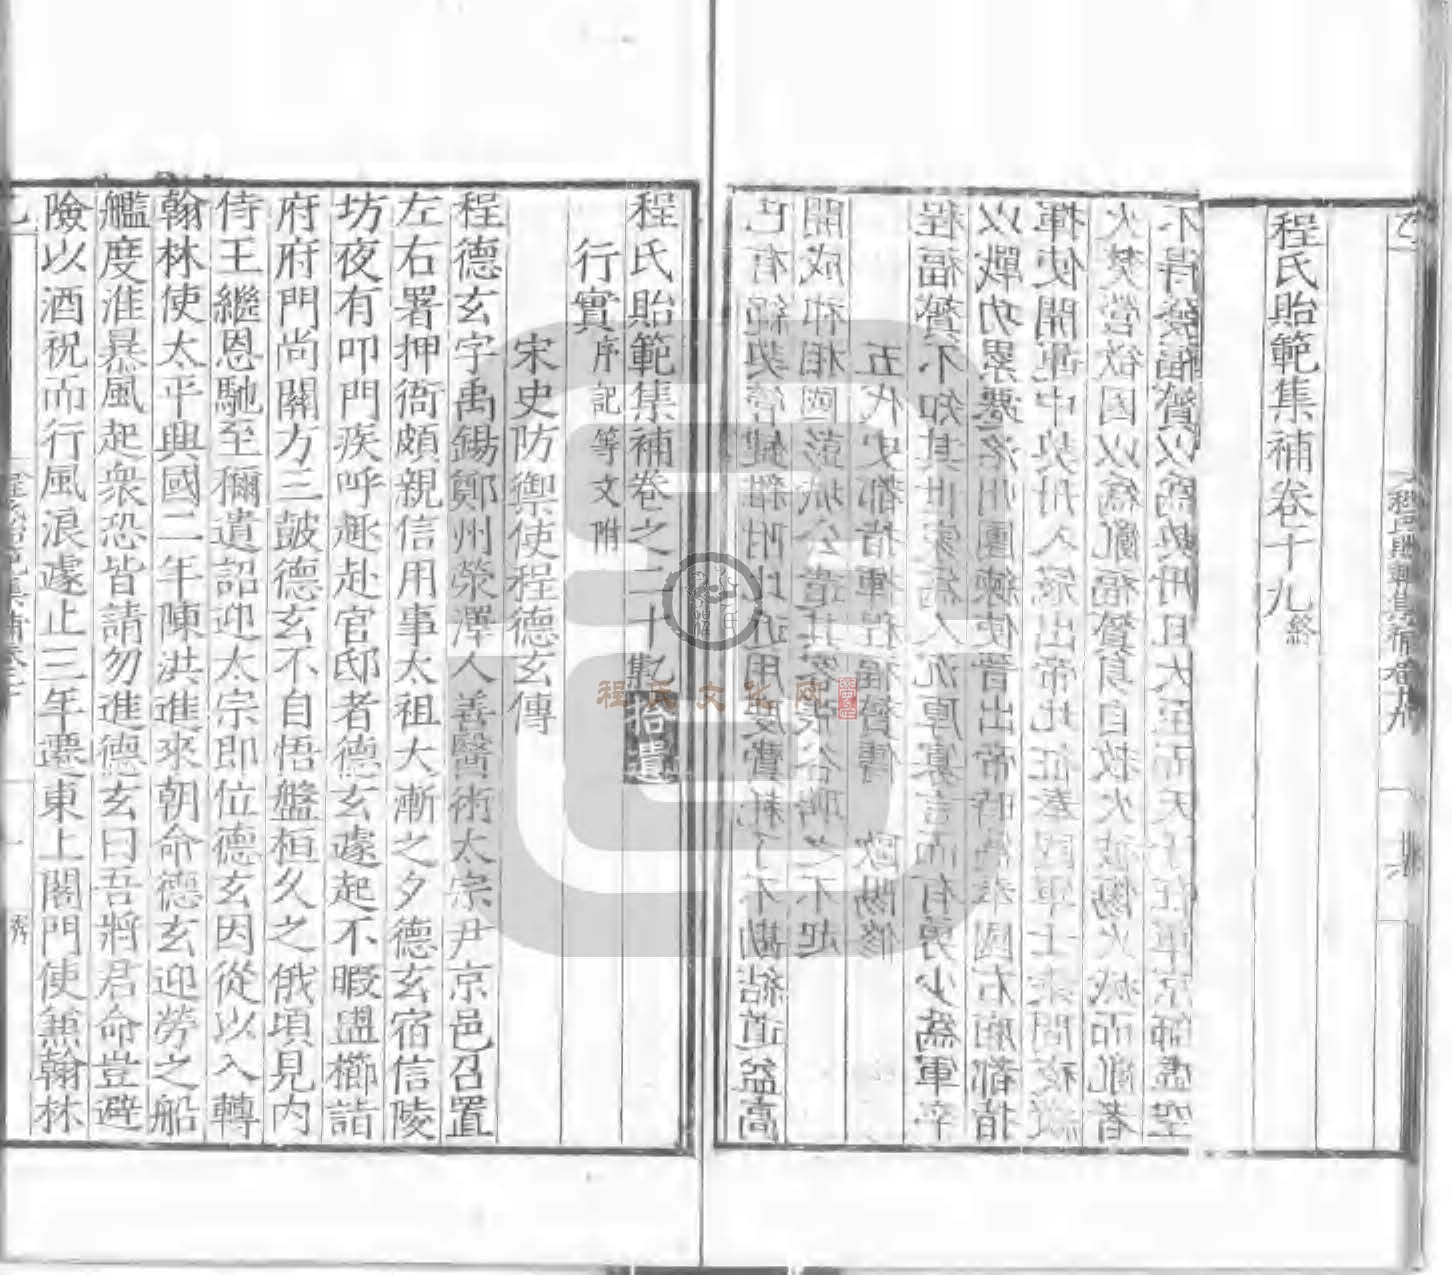 程氏貽範集補卷十九終
已有紀契管鍵雜附以近用度費耗了不勘結道益高
開成初相國彭城公遣其客張谷聘之不起
五代史都指揮程福贇傳 歐陽修
程福贇不知其世家為人沉厚寡言而有勇少為軍卒
以戰功累遷洺州團練使晉出帝時為奉國右廂都指
揮使開運中契丹入寇出帝北征奉國軍士乘間夜縱
火焚營欲因以為亂福贇身自救火被傷火滅而亂者
不得發福贇以為契丹且大至而天子在軍京師虛空
程氏貽範集補卷之二十 集 拾遺
行實 序記等文附
宋史防禦使程德玄傳
程德玄字禹錫鄭州滎澤人善醫術太宗尹京邑召置
左右署押衙頗親信用事太祖大漸之夕德玄宿信陵
坊夜有叩門疾呼趣赴官邸者德玄遽起不暇盥櫛詣
府府門尚關方三鼓德玄不自悟盤桓久之俄頃見內
侍王繼恩馳至稱遺詔迎太宗即位德玄因從以入轉
翰林使太平興國二年陳洪進來朝命德玄迎勞之船
艦度淮暴風起衆恐皆請勿進德玄曰吾將君命豈避
險以酒祝而行風浪遽止三年遷東上閤門使兼翰林
程氏文化網